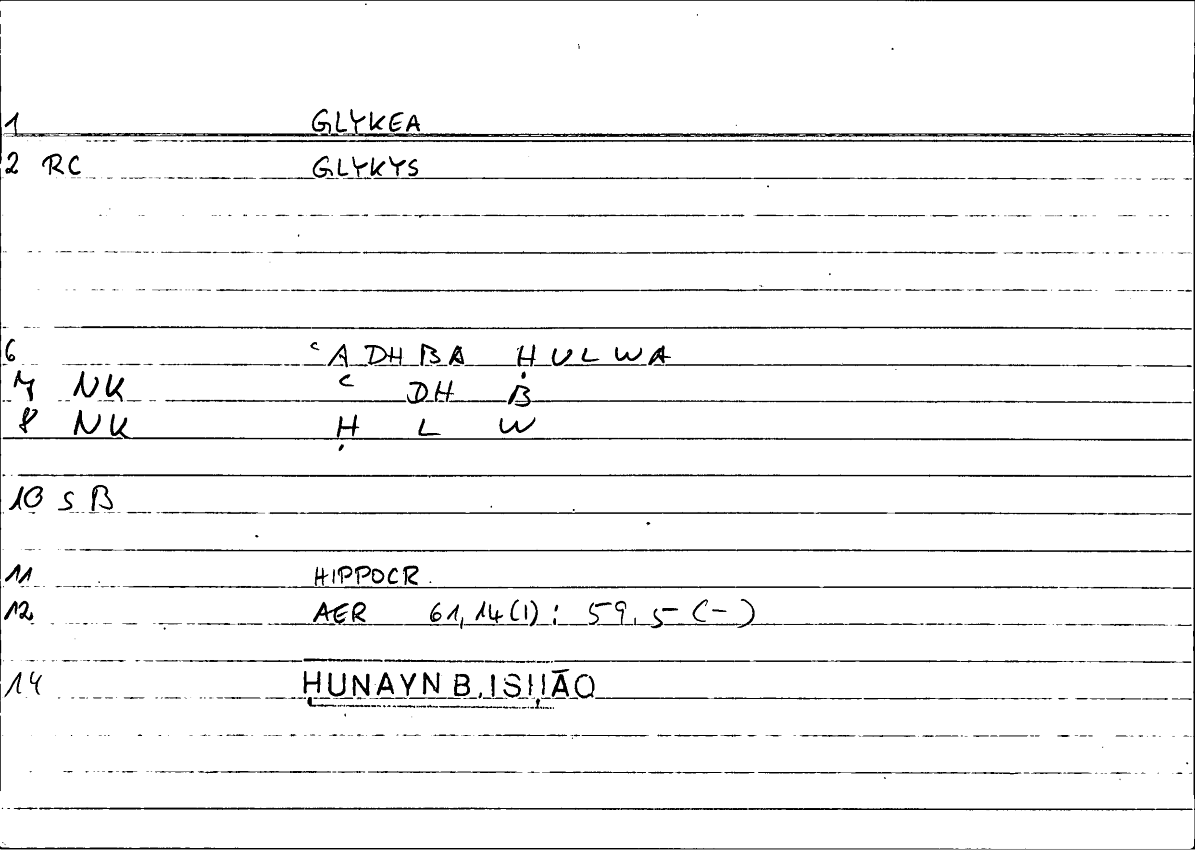 1 GLYKEA
2 RC GLYKYS
6 ʿADHBA ḤULWA
7 NK ʿ DH B
8 NK Ḥ L W
10 S B
11 HIPPOCR.
12 AER 61,14(1): 59,5(-)
14 ḤUNAYN B. ISḤĀQ